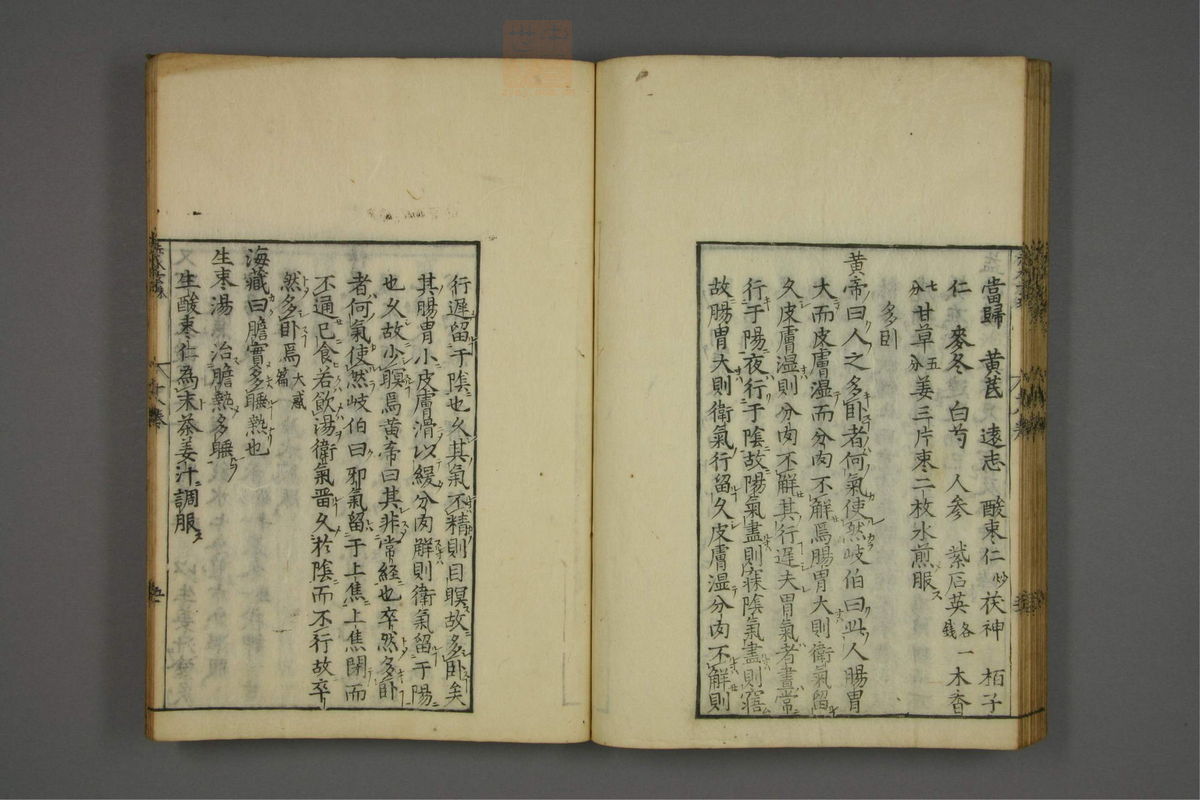 當歸 黄芪 遠志 酸棗仁炒 茯神 栢子
仁 麥冬 白芍 人参 紫石英各一錢 木香
七分 甘草五分 姜三片棗二枚水煎服
多卧
黄帝曰人之多卧者何氣使然岐伯曰此人腸胃
大而皮膚湿而分肉不解焉腸胃大則衛氣留
久皮膚湿則分肉不解其行遅夫胃氣者晝常
行于陽夜行于陰故陽氣盡則寐陰氣盡則寤
故腸胃大則衛氣行留久皮膚湿分肉不解則
行遅留于陰也久其氣不精則目瞑故多卧矣
其腸胃小皮膚滑以緩分肉解則衛氣留于陽
也久故少瞑焉黄帝曰其非常経也卒然多卧
者何氣使然岐伯曰邪氣留于上焦上焦閉而
不通已食若飲湯衛氣畱久於陰而不行故卒
然多卧焉大惑篇
海藏曰膽實多睡熱也
生棗湯 治膽熱多睡
生酸棗仁為末茶姜汁調服